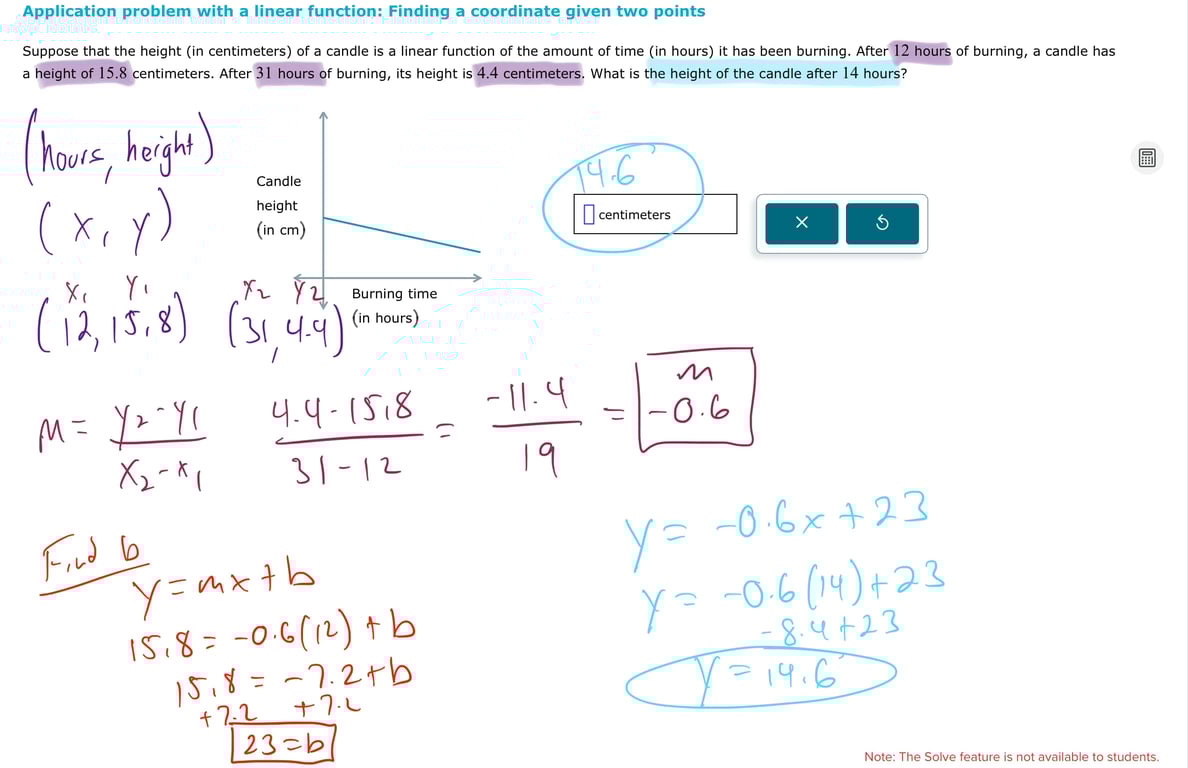 Application problem with a linear function: Finding a coordinate given two points
Suppose that the height (in centimeters) of a candle is a linear function of the amount of time (in hours) it has been burning. After 12 hours of burning, a candle has
a height of 15.8 centimeters. After 31 hours of burning, its height is 4.4 centimeters. What is the height of the candle after 14 hours?
(hours, height)
(x, y)
x₁ y₁
(12, 15.8)
x₂ y₂
(31, 4.4)
Candle
height
(in cm)
Burning time
(in hours)
14.6
centimeters
m = y₂-y₁ / x₂-x₁
4.4-15.8 / 31-12 = -11.4 / 19 =
m
-0.6
Find b
y=mx+b
15.8 = -0.6(12) + b
15.8 = -7.2+b
+7.2 +7.2
23=b
y = -0.6x+23
y = -0.6(14)+23
-8.4+23
y=14.6
Note: The Solve feature is not available to students.